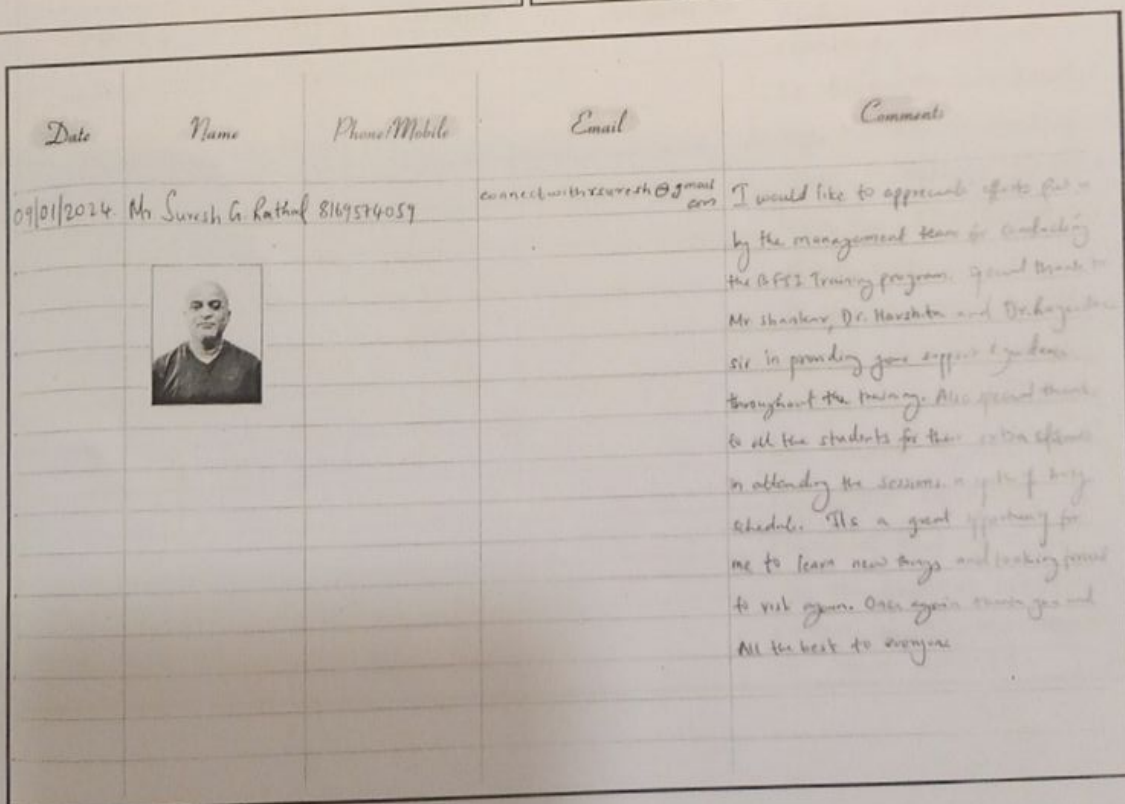 Date Name Phone/Mobile Email Comments
09/01/2024 Mr Suresh G. Rathod 8169574059 connectwithrsuresh@gmail
com
I would like to appreciate efforts put in
by the management team for conducting
the BFSI Training program. Special thanks to
Mr Shankar, Dr. Harshita and
sir in providing your support & guidance
throughout the training. Also special thanks
to all the students for their extra efforts
in attending the sessions in spite of busy
schedule. It's a great opportunity for
me to learn new things and looking forward
to visit again. Once again thank you and
All the best to everyone